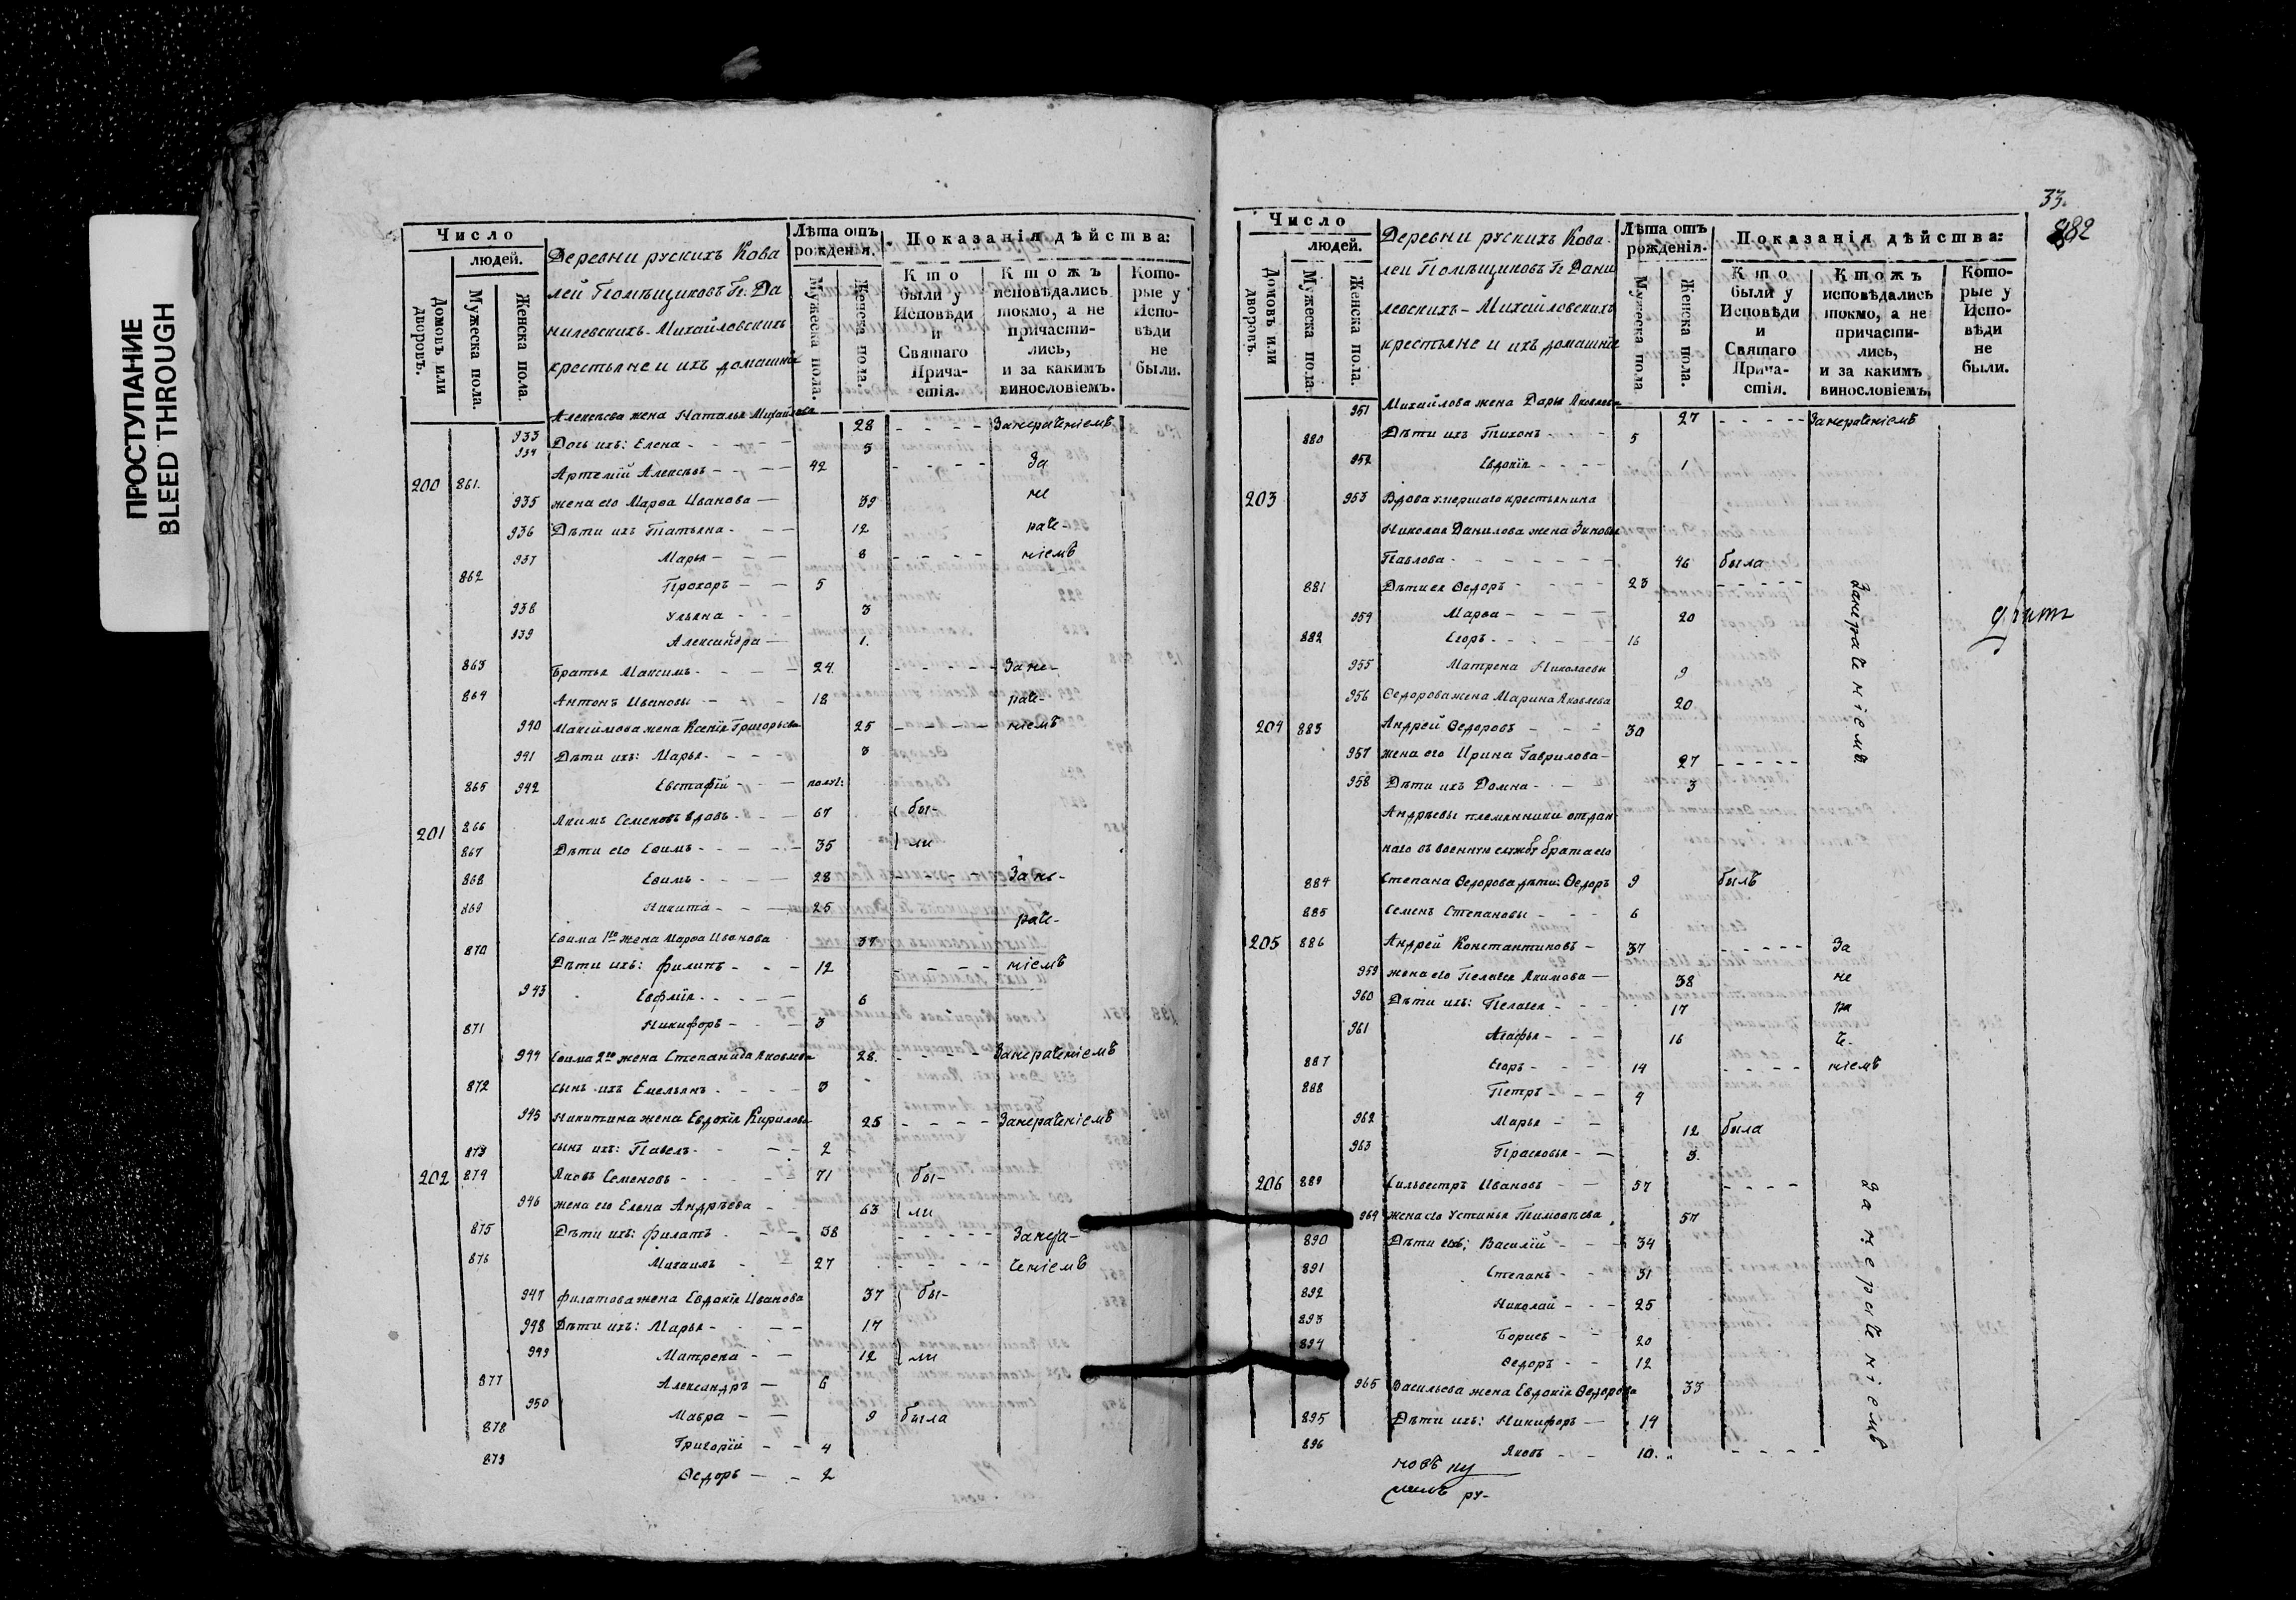 ПРОСТУПАНИЕ
BLEED THROUGH
Число
людей.
Домовъ или дворовъ.
Мужеска пола.
Женска пола.
Деревни рускихъ Кова
лей Помѣщиковъ Г: Да
нилевскихъ-Михайловскихъ
крестьяне и ихъ домашнія
Лѣта отъ рожденія.
Мужеска пола.
Женска пола.
Показанія дѣйства:
Кто были у Исповѣди и Святаго Прича-стія.
Ктожъ исповѣдались токмо, а не причасти-лись, и за какимъ винословіемъ.
Кото-рые у Испо-вѣди не были.
933 Алексѣева жена Наталья Михайлова 28 - - - - Занераченіемъ
934 Дочь ихъ: Елена - - - 5
200 861. Артемій Алексѣевъ - - - 42 - - - - За
935 жена его Марѳа Иванова — 39 не
936 Дѣти ихъ Татьяна - - - 12 раче-
937 Марья - - - 8 - - - - ніемъ
862 Прохоръ - - 5
938 Ульяна - - - 3
939 Александра — 1.
863 Братья Максимъ - - - 24. - - - - - Зане-
864 Антонъ Ивановы - - 18 раче-
940 Максимова жена Ксенія Григорьева 25 - - - - ніемъ
941 Дѣти ихъ: Марья - - - 3
865 942 Евстафій - - - полуг:
201 866 Якимъ Семеновъ вдовъ - - 67 бы-
867 Дѣти его Еѳимъ - - - 35 ли
868 Еѳимъ - - - 28 - - - - Зане-
869 Никита - - - 25 раче-
Еѳима 1го жена Марѳа Иванова 37
870 Дѣти ихъ: Филипъ - - - 12 - - - - ніемъ
943 Евфмія - - - 6
871 Никифоръ - - - 3
944 Еѳима 2го жена Степанида Яковлева 28. - - - - Занераченіемъ
872 сынъ ихъ Емельянъ - - - 3
945 Никитина жена Евдокія Кирилова 25 - - - - Занераченіемъ
873 сынъ ихъ: Павелъ - - - 2
202 874 Яковъ Семеновъ - - - 71 бы-
946 жена его Елена Андрѣева - 63 ли
875 Дѣти ихъ: Филатъ - - - 38 - - - - - Занера-
876 Михаилъ - - 27 - - - - ченіемъ
947 Филатова жена Евдокія Иванова 37 бы-
948 Дѣти ихъ: Марья - - - 17
949 Матрена - - 12 ли
877 Александръ — 6
950 Мавра - — 9 была
878 Григорій - - 4
879 Ѳедоръ — - 2
33.
882
Число
людей.
Домовъ или дворовъ.
Мужеска пола.
Женска пола.
Деревни рускихъ Кова-
лей Помѣщиковъ Г: Дани
левскихъ-Михайловскихъ
крестьяне и ихъ домашніе
Лѣта отъ рожденія.
Мужеска пола
Женска пола.
Показанія дѣйства:
Кто были у Исповѣди и Святаго Прича-стія.
Ктожъ исповѣдались токмо, а не причасти-лись, и за какимъ винословіемъ.
Кото-рые у Испо-вѣди не были.
951 Михайлова жена Дарья Яковлева 27 - - - - Занераченіемъ
880 Дѣти ихъ Тихонъ - - 5
952 Евдокія - - - 1
203 953 Вдова умершаго крестьянина
Николая Данилова жена Зиновья
Павлова - - - - - 46 была
881 Дѣти ея Ѳедоръ - - - 23 - - - - - Занераченіемъ
954 Марѳа - - - 20
882 Егоръ - - - 16
955 Матрена Николаевы 9
956 Ѳедорова жена Марина Яковлева 20
204 883 Андрей Ѳедоровъ - - - 30
957 жена его Ирина Гаврилова - 27 - - - - -
958 Дѣти ихъ Домна - - 3
Андрѣевы племянники отдан
наго въ военную службу брата его
884 Степана Ѳедорова дѣти: Ѳедоръ 9 былъ
885 Семенъ Степановы - - - 6
205 886 Андрей Константиновъ - 37 - - - - - За
959 жена его Пелагея Акимова — 38 не
960 Дѣти ихъ: Пелагея - - - 17 ра
961 Агафья - - - 16 че-
887 Егоръ - - - 14 - - - - ніемъ
888 Петръ - - - 4
962 Марья - - 12 была
963 Прасковья - — 3.
206 889 Сильвестръ Ивановъ - — 57 - - - - Занераченіемъ
964 жена его Устинья Тимоѳеева 57
890 Дѣти ихъ: Василій - - - 34
891 Степанъ - - 31
892 Николай - - - 25
893 Борисъ - - 20
894 Ѳедоръ - - 12
965 Васильева жена Евдокія Ѳедорова 33
895 Дѣти ихъ: Никифоръ — 14
896 Яковъ - - 10. - - - - -